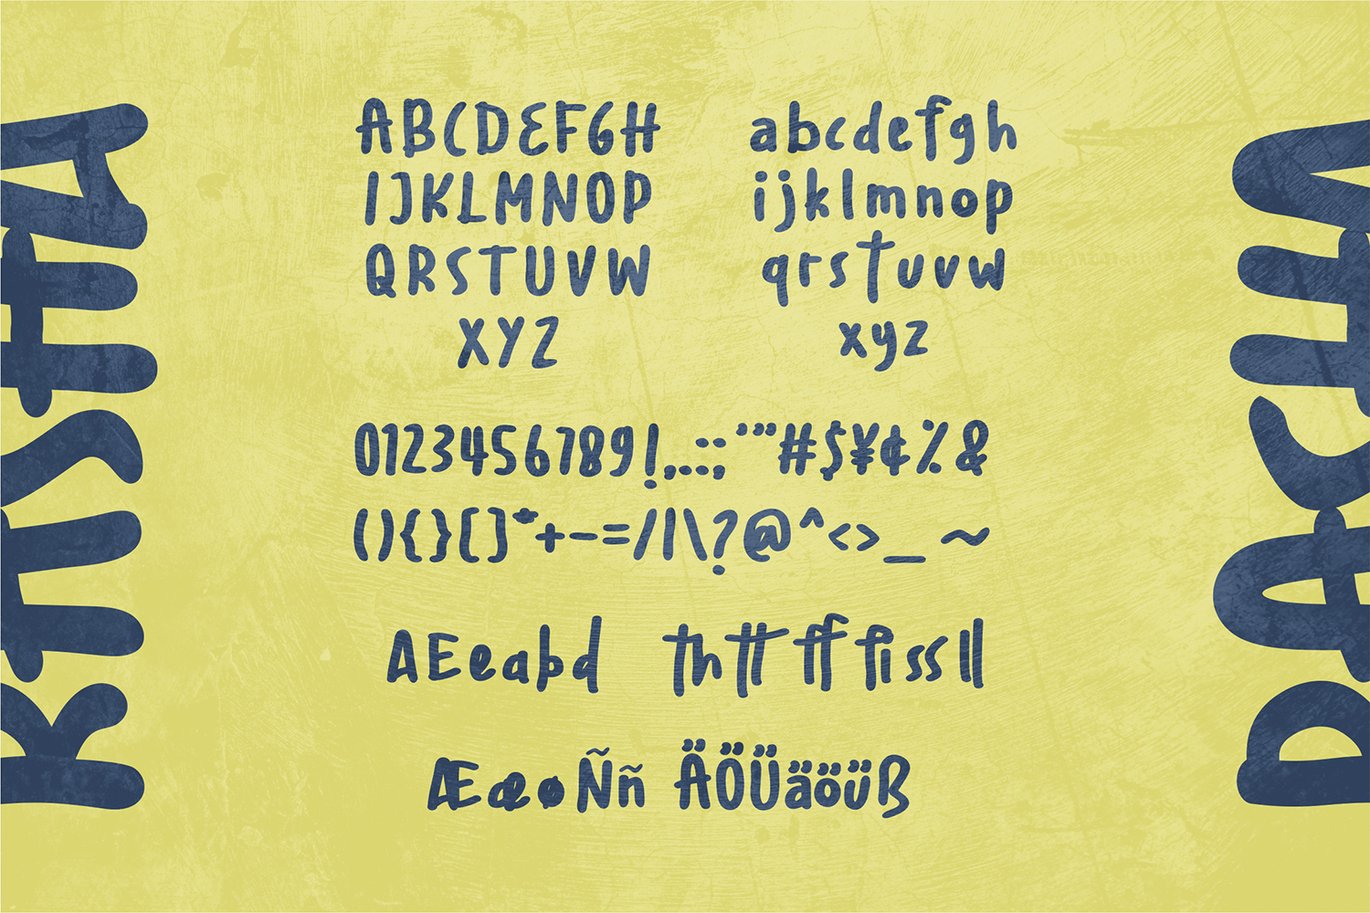 KASHA
ABCDEFGH
IJKLMNOP
QRSTUVW
XYZ
abcdefgh
ijklmnop
qrstuvw
xyz
0123456789!,..:;'"'#$¥¢%&
(){}[]*+-=/|\?@^<>_ ~
AEeabd th tt ff fi ss ll
ÆæøÑñ ÄÖÜäöüß
PASHA